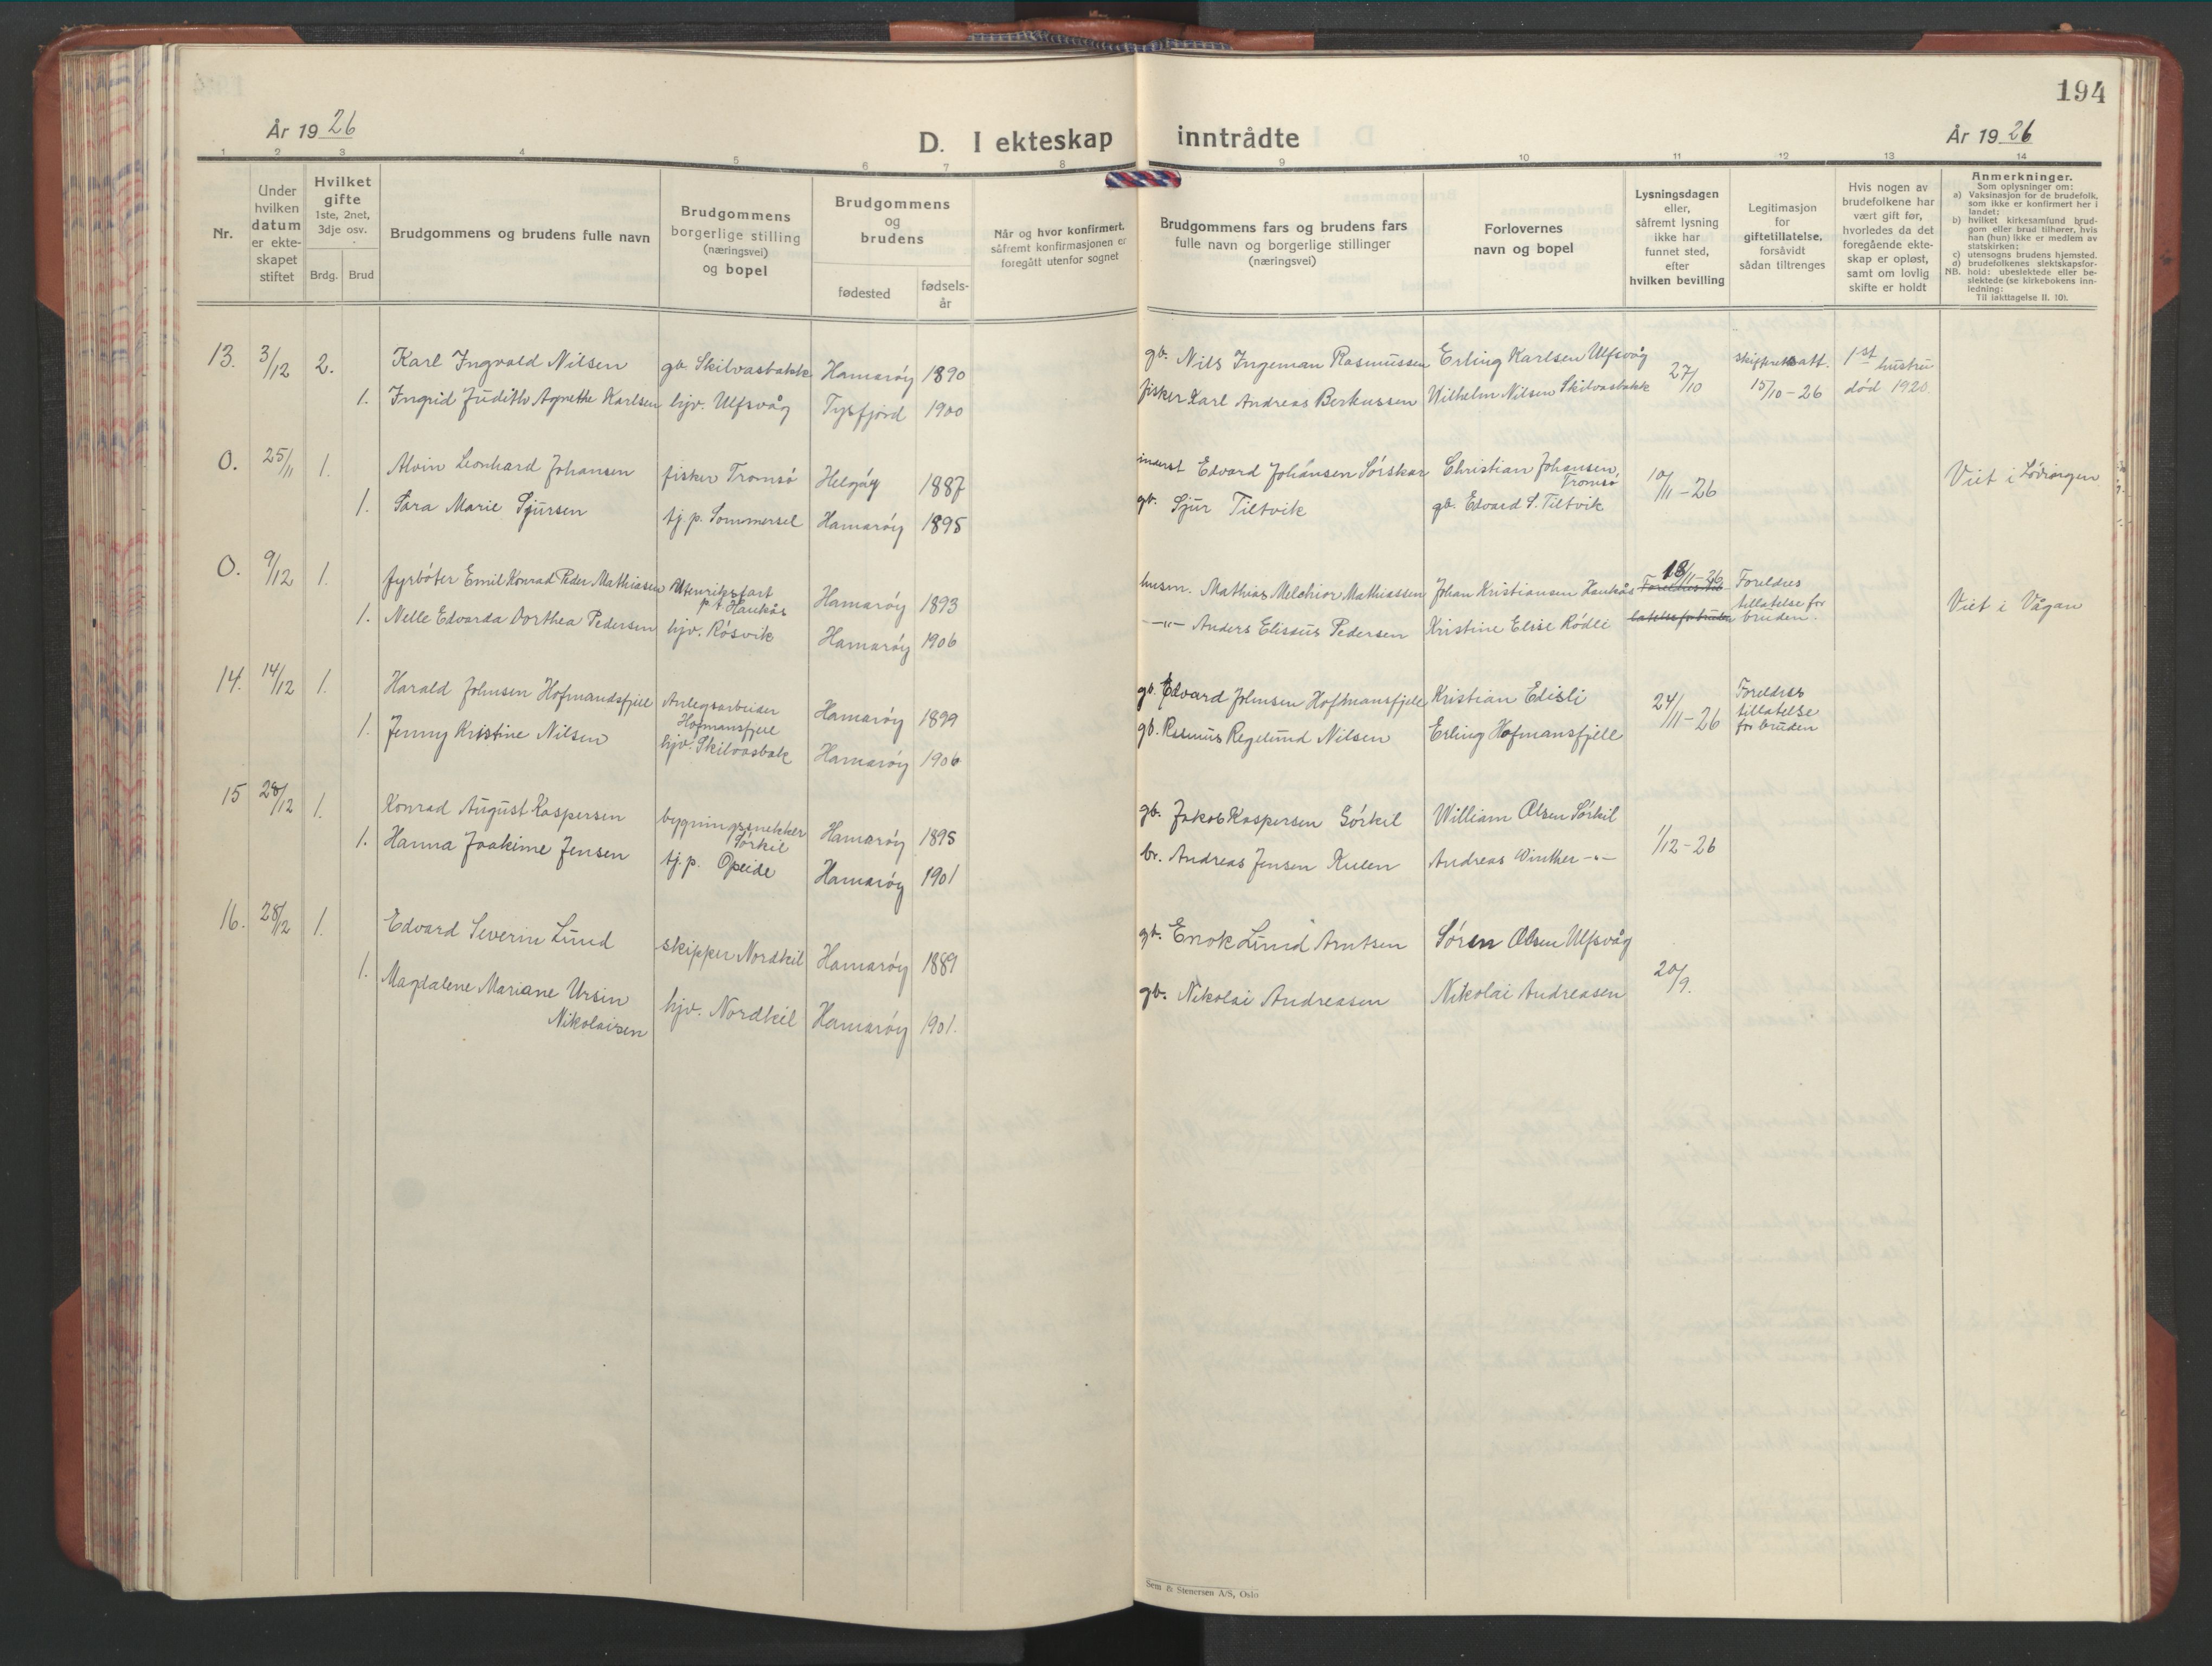 194
År 1926
D. I ekteskap inntrådte
År 1926
1 2 3 4 5 6 7 8 9 10 11 12 13 14
Nr.
Under hvilken datum er ekteskapet stiftet
Hvilket gifte 1ste, 2net, 3dje osv.
Brdg. Brud
Brudgommens og brudens fulle navn
Brudgommens borgerlige stilling (næringsvei) og bopel
Brudgommens og brudens
fødested
fødsels-år
Når og hvor konfirmert, såfremt konfirmasjonen er foregått utenfor sognet
Brudgommens fars og brudens fars fulle navn og borgerlige stillinger (næringsvei)
Forlovernes navn og bopel
Lysningsdagen eller, såfremt lysning ikke har funnet sted, efter hvilken bevilling
Legitimasjon for giftetillatelse, forsåvidt sådan tiltrenges
Hvis nogen av brudefolkene har vært gift før, hvorledes da det foregående ekteskap er opløst, samt om lovlig skifte er holdt
Anmerkninger.
Som oplysninger om:
a) Vaksinasjon for de brudefolk, som ikke er konfirmert her i landet;
b) hvilket kirkesamfund brudgom eller brud tilhører, hvis han (hun) ikke er medlem av statskirken;
c) utensogns brudens hjemsted.
d) brudefolkenes slektskapsforhold: ubeslektede eller beslektede (se kirkebokens innledning:
NB. Til iakttagelse II. 10).
13. 3/12 2. Karl Ingvald Nilsen gb. Skilvasbakk Hamarøy 1890 gb. Nils Ingeman Rasmussen Erling Karlsen Ulfsvåg 27/10 skifteretsatt. 15/10-26 1st hustru død 1920.
1. Ingrid Judith Agnethe Karlsen hjv. Ulfsvåg Tysfjord 1900 fisker Karl Andreas Berkussen Wilhelm Nilsen Skilvasbakk
0. 25/11 1. Alvin Leonhard Johansen fisker Tromsø Helgøy 1887 inderst Edvard Johansen Sørskar Christian Johansen, Tromsø 10/11-26 Viet i Lødingen
1. Sara Marie Sjursen tj. p. Sommersel Hamarøy 1895 gb. Sjur Tiltvik gb. Edvard S. Tiltvik
0. 9/12 1. fyrbøter Emil Konrad Peder Mathiasen Utenriksfart p.t. Haukås Hamarøy 1893 husm. Mathias Melchior Mathiassen Johan Kristiansen Haukås 18/11-26 Foreldres tillatelse for bruden. Viet i Vågan
1. Nelle Edvarda Dorthea Pedersen hjv. Røsvik Hamarøy 1906 -"- Anders Elisæus Pedersen Kristine Elise Rødli
14. 14/12 1. Harald Johnsen Hofmandsfjell Anlegsarbeider Hofmansfjell Hamarøy 1899 gb. Edvard Johnsen Hoffmansfjell Kristian Edisli 24/11-26 Foreldres tillatelse for bruden
1. Jenny Kristine Nilsen hjv. Skilvasbak Hamarøy 1906 gb. Rasmus Regelund Nilsen Erling Hofmansfjell
15 28/12 1. Konrad August Kaspersen bygningssnekker Sørkil Hamarøy 1895 gb. Jakob Kaspersen Sørkil William Olsen Sørkil 1/12-26
1. Hanna Joakime Jensen tj. p. Opeide Hamarøy 1901 br. Andreas Jensen Kulen Andreas Winther -"-
16. 28/12 1. Edvard Severin Lund skipper Nordkil Hamarøy 1889 gb. Enok Lund Arntsen Søren Olsen Ulfsvåg 20/9.
1. Magdalene Mariane Ursin Nikolaisen hjv. Nordkil Hamarøy 1901. gb. Nikolai Andreasen Nikolai Andreasen
Sem & Stenersen A/S, Oslo